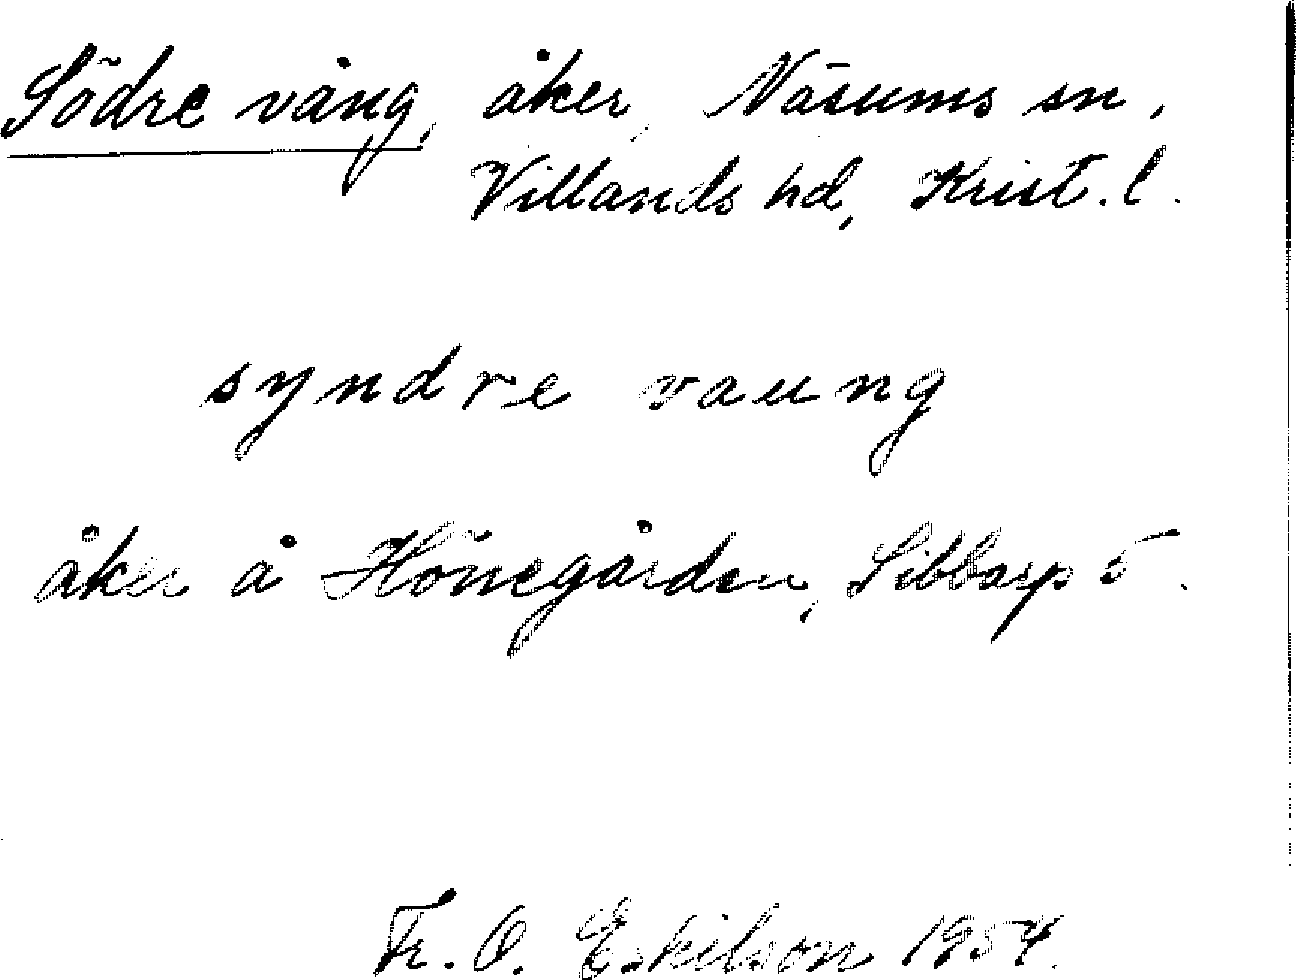 Södre vång, åker, Näsums sn,
Villands hd, Krist. l.
syndre vaung
åker å Hönegården, Sibbarp 5.
Fr. O. Eskilson 1954.